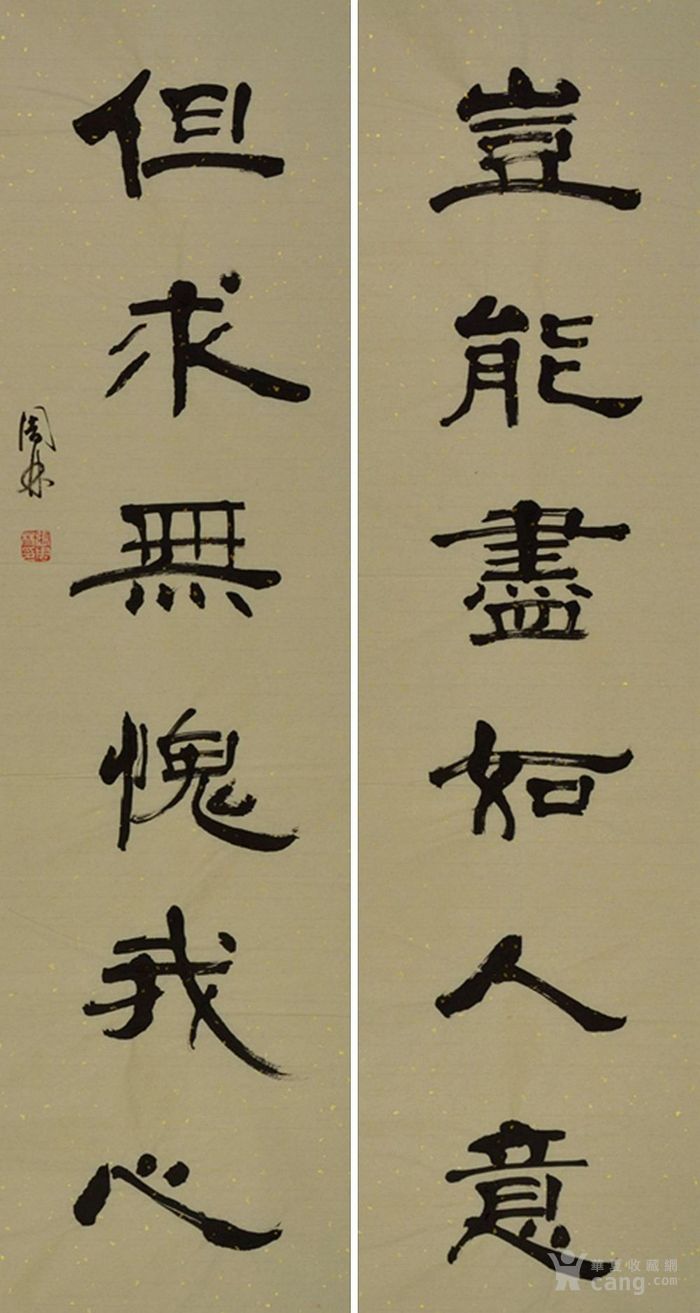 豈能盡如人意
但求無愧我心
華夏收藏網
cang.com